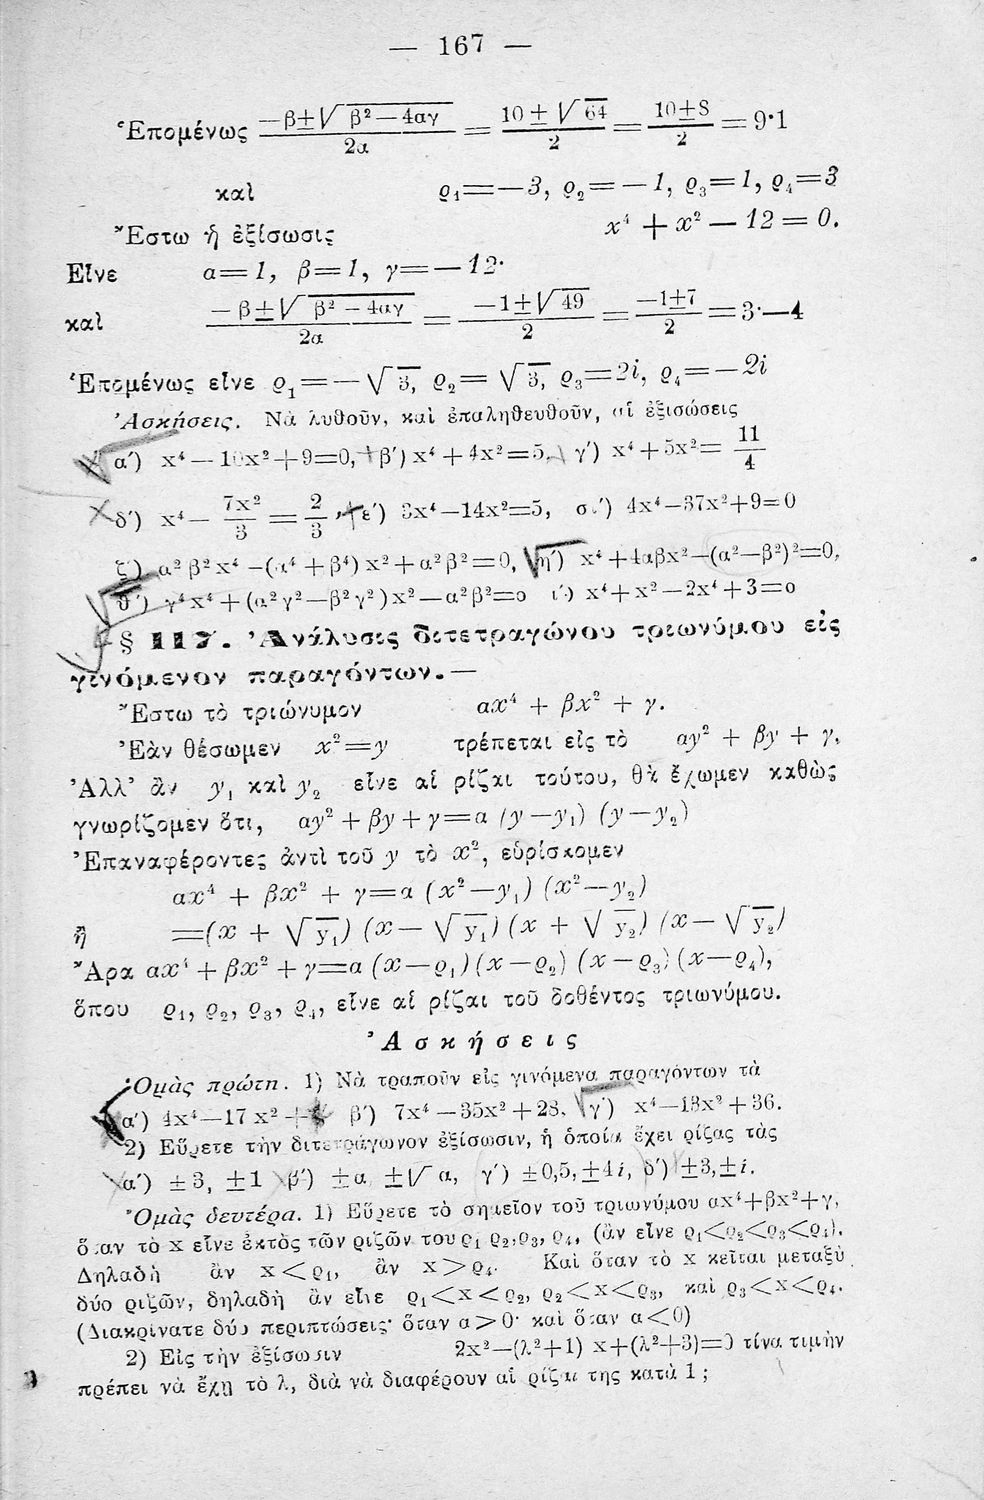 — 167 —
Ἑπομένως −β±√β²−4αγ / 2α = 10±√64 / 2 = 10±8 / 2 = 9·1
καὶ ϱ₁=−3, ϱ₂=−1, ϱ₃=1, ϱ₄=3
Ἔστω ἡ ἐξίσωσις x⁴ + x² − 12 = 0.
Εἶνε α=1, β=1, γ=−12·
καὶ −β±√β²−4αγ / 2α = −1±√49 / 2 = −1±7 / 2 = 3·−4
Ἑπομένως εἶνε ϱ₁=−√3, ϱ₂=√3, ϱ₃=2i, ϱ₄=−2i
Ἀσκήσεις. Νὰ λυθοῦν, καὶ ἐπαληθευθοῦν, αἱ ἐξισώσεις
α΄) x⁴−10x²+9=0, β΄) x⁴+4x²=5, γ΄) x⁴+5x²= 11/4
δ΄) x⁴− 7x²/3 = 2/3, ε΄) 3x⁴−14x²=5, σ΄) 4x⁴−37x²+9=0
ζ΄) α²β²x⁴−(α⁴+β⁴)x²+α²β²=0, η΄) x⁴+4αβx²−(α²−β²)²=0,
θ΄) γ⁴x⁴+(α²γ²−β²γ²)x²−α²β²=0 ι΄) x⁴+x²−2x⁴+3=0
§ 117. Ἀνάλυσις διτετραγώνου τριωνύμου εἰς
γινόμενον παραγόντων.—
Ἔστω τὸ τριώνυμον αx⁴ + βx² + γ.
Ἐὰν θέσωμεν x²=y τρέπεται εἰς τὸ αy² + βy + γ,
Ἀλλ' ἂν y₁ καὶ y₂ εἶνε αἱ ρίζαι τούτου, θὰ ἔχωμεν καθὼς
γνωρίζομεν ὅτι, αy²+βy+γ=α (y−y₁) (y−y₂)
Ἐπαναφέροντες ἀντὶ τοῦ y τὸ x², εὑρίσκομεν
αx⁴ + βx² + γ=α (x²−y₁) (x²−y₂)
ἢ =(x + √y₁) (x−√y₁) (x + √y₂) (x−√y₂)
Ἄρα αx⁴+βx²+γ=α (x−ϱ₁) (x−ϱ₂) (x−ϱ₃) (x−ϱ₄),
ὅπου ϱ₁, ϱ₂, ϱ₃, ϱ₄, εἶνε αἱ ρίζαι τοῦ δοθέντος τριωνύμου.
Ἀσκήσεις
Ὁμὰς πρώτη. 1) Νὰ τραποῦν εἰς γινόμενα παραγόντων τὰ
α΄) 4x⁴−17x²+ β΄) 7x⁴−35x²+28. γ΄) x⁴−13x²+36.
2) Εὕρετε τὴν διτετράγωνον ἐξίσωσιν, ἡ ὁποία ἔχει ρίζας τὰς
α΄) ±3, ±1 β΄) ±α, ±√α, γ΄) ±0,5,±4i, δ΄) ±3,±i.
Ὁμὰς δευτέρα. 1) Εὕρετε τὸ σημεῖον τοῦ τριωνύμου αx⁴+βx²+γ,
ὅταν τὸ x εἶνε ἐκτὸς τῶν ριζῶν του ϱ₁ ϱ₂,ϱ₃, ϱ₄, (ἂν εἶνε ϱ₁<ϱ₂<ϱ₃<ϱ₄).
Δηλαδὴ ἂν x<ϱ₁, ἂν x>ϱ₄. Καὶ ὅταν τὸ x κεῖται μεταξὺ
δύο ριζῶν, δηλαδὴ ἂν εἶνε ϱ₁<x<ϱ₂, ϱ₂<x<ϱ₃, καὶ ϱ₃<x<ϱ₄.
(Διακρίνατε δύο περιπτώσεις· ὅταν α>0· καὶ ὅταν α<0)
2) Εἰς τὴν ἐξίσωσιν 2x²−(λ²+1) x+(λ²+3)=0 τίνα τιμὴν
πρέπει νὰ ἔχῃ τὸ λ, διὰ νὰ διαφέρουν αἱ ρίζαι της κατὰ 1 ;